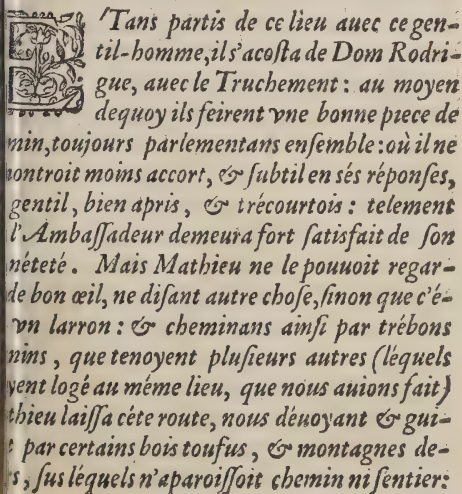 E'Tans partis de ce lieu auec ce gen-
til-homme, il s'acosta de Dom Rodri-
gue, auec le Truchement : au moyen
dequoy ils feirent vne bonne piece de
min, toujours parlementans ensemble : où il ne
ontroit moins accort, & subtil en sés réponses,
gentil, bien apris, & trécourtois : telement
l'Ambassadeur demeura fort satisfait de son
néteté. Mais Mathieu ne le pouuoit regar-
de bon œil, ne disant autre chose, sinon que c'é-
vn larron : & cheminans ainsi par trébons
mins, que tenoyent plusieurs autres (léquels
yent logé au méme lieu, que nous auions fait)
thieu laissa céte route, nous déuoyant & gui-
t par certains bois toufus, & montagnes de-
s, sus léquels n'aparoissoit chemin ni sentier: